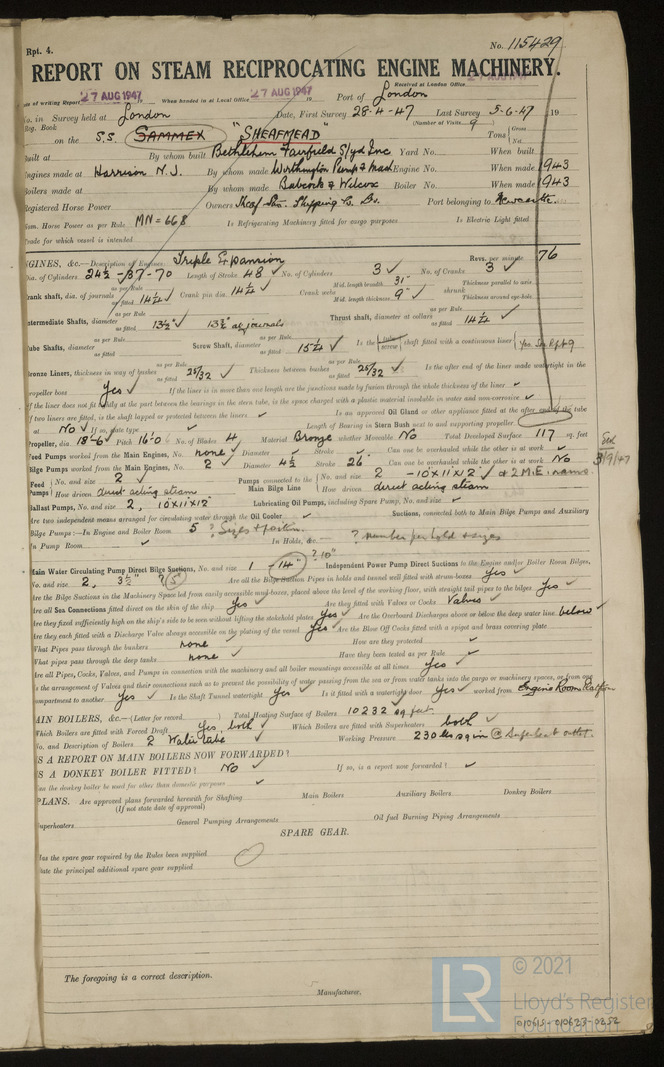 Rpt. 4.
No. 115429
REPORT ON STEAM RECIPROCATING ENGINE MACHINERY.
Received at London Office
of writing Report 27 AUG 1947 When handed in at Local Office 27 AUG 1947 19 Port of London
No. in Survey held at London Date, First Survey 28-4-47 Last Survey 5-6-47 19
Reg. Book (Number of Visits 9)
on the S.S. SAMMEX "SHEAFMEAD" Tons Gross Net
Built at By whom built Bethlehem Fairfield S/yd Inc Yard No. When built
Engines made at Harrison N.J. By whom made Worthington Pump & Mach Engine No. When made 1943
Boilers made at By whom made Babcock & Wilcox Boiler No. When made 1943
Registered Horse Power Owners Sheaf Stm. Shipping Co. Port belonging to Newcastle
Nom. Horse Power as per Rule MN=668 Is Refrigerating Machinery fitted for cargo purposes Is Electric Light fitted
Trade for which vessel is intended
ENGINES, &c.—Description of Engines Triple Expansion Revs. per minute 76
Dia. of Cylinders 24½-37-70 Length of Stroke 48 No. of Cylinders 3 No. of Cranks 3
Crank shaft, dia. of journals as per Rule as fitted 14¼ Crank pin dia. 14¼ Crank webs Mid. length breadth 31" Mid. length thickness 9" shrunk Thickness parallel to axis Thickness around eye-hole
Intermediate Shafts, diameter as per Rule as fitted 13½" 13½" at journals Thrust shaft, diameter at collars as per Rule as fitted 14¼
Tube Shafts, diameter as per Rule as fitted Screw Shaft, diameter as per Rule as fitted 15¼ Is the tube screw shaft fitted with a continuous liner Yes. See Rpt 9
Bronze Liners, thickness in way of bushes as per Rule as fitted 25/32 Thickness between bushes as per Rule as fitted 25/32 Is the after end of the liner made watertight in the
propeller boss Yes If the liner is in more than one length are the junctions made by fusion through the whole thickness of the liner
If the liner does not fit tightly at the part between the bearings in the stern tube, is the space charged with a plastic material insoluble in water and non-corrosive
If two liners are fitted, is the shaft lapped or protected between the liners Is an approved Oil Gland or other appliance fitted at the after end of the tube
at No If so, state type Length of Bearing in Stern Bush next to and supporting propeller
Propeller, dia 18-6 Pitch 16-0 No. of Blades 4 Material Bronze whether Moveable No Total Developed Surface 117 sq. feet
Feed Pumps worked from the Main Engines, No. none Diameter Stroke Can one be overhauled while the other is at work
Bilge Pumps worked from the Main Engines, No. 2 Diameter 4½ Stroke 26 Can one be overhauled while the other is at work No
3/9/47
Feed Pumps No. and size 2 How driven direct acting steam Pumps connected to the Main Bilge Line No. and size 2 -10"x11"x12" & 2 M.E. rams How driven direct acting steam
Ballast Pumps, No. and size 2, 10"x11"x12" Lubricating Oil Pumps, including Spare Pump, No. and size
Are two independent means arranged for circulating water through the Oil Cooler Suctions, connected both to Main Bilge Pumps and Auxiliary
Bilge Pumps:—In Engine and Boiler Room 5 ? Sizes & position
In Pump Room In Holds, &c. ? number per hold & sizes
Main Water Circulating Pump Direct Bilge Suctions, No. and size 1 -14" ? 10" Independent Power Pump Direct Suctions to the Engine and/or Boiler Room Bilges,
No. and size 2, 3½" ? (5") Are all the Bilge Suction Pipes in holds and tunnel well fitted with strum-boxes Yes
Are the Bilge Suctions in the Machinery Space led from easily accessible mud-boxes, placed above the level of the working floor, with straight tail pipes to the bilges Yes
Are all Sea Connections fitted direct on the skin of the ship Yes Are they fitted with Valves or Cocks Valves
Are they fixed sufficiently high on the ship's side to be seen without lifting the stokehold plates Yes Are the Overboard Discharges above or below the deep water line below
Are they each fitted with a Discharge Valve always accessible on the plating of the vessel Yes Are the Blow Off Cocks fitted with a spigot and brass covering plate
What Pipes pass through the bunkers none How are they protected
What pipes pass through the deep tanks none Have they been tested as per Rule
Are all Pipes, Cocks, Valves, and Pumps in connection with the machinery and all boiler mountings accessible at all times Yes
Is the arrangement of Valves and their connections such as to prevent the possibility of water passing from the sea or from water tanks into the cargo or machinery spaces, or from one
compartment to another Yes Is the Shaft Tunnel watertight Yes Is it fitted with a watertight door Yes worked from Engine Room Platform
MAIN BOILERS, &c.—(Letter for record ) Total Heating Surface of Boilers 10232 sq feet
Which Boilers are fitted with Forced Draft Yes, both Which Boilers are fitted with Superheaters both
No. and Description of Boilers 2 Water tube Working Pressure 230 lbs sq in @ Superheat outlet.
IS A REPORT ON MAIN BOILERS NOW FORWARDED?
IS A DONKEY BOILER FITTED? No If so, is a report now forwarded?
Can the donkey boiler be used for other than domestic purposes
PLANS. Are approved plans forwarded herewith for Shafting Main Boilers Auxiliary Boilers Donkey Boilers
(If not state date of approval)
Superheaters General Pumping Arrangements Oil fuel Burning Piping Arrangements
SPARE GEAR.
Has the spare gear required by the Rules been supplied
State the principal additional spare gear supplied
The foregoing is a correct description.
Manufacturer.
LR © 2021
Lloyd's Register
Foundation
010615-010623-0252